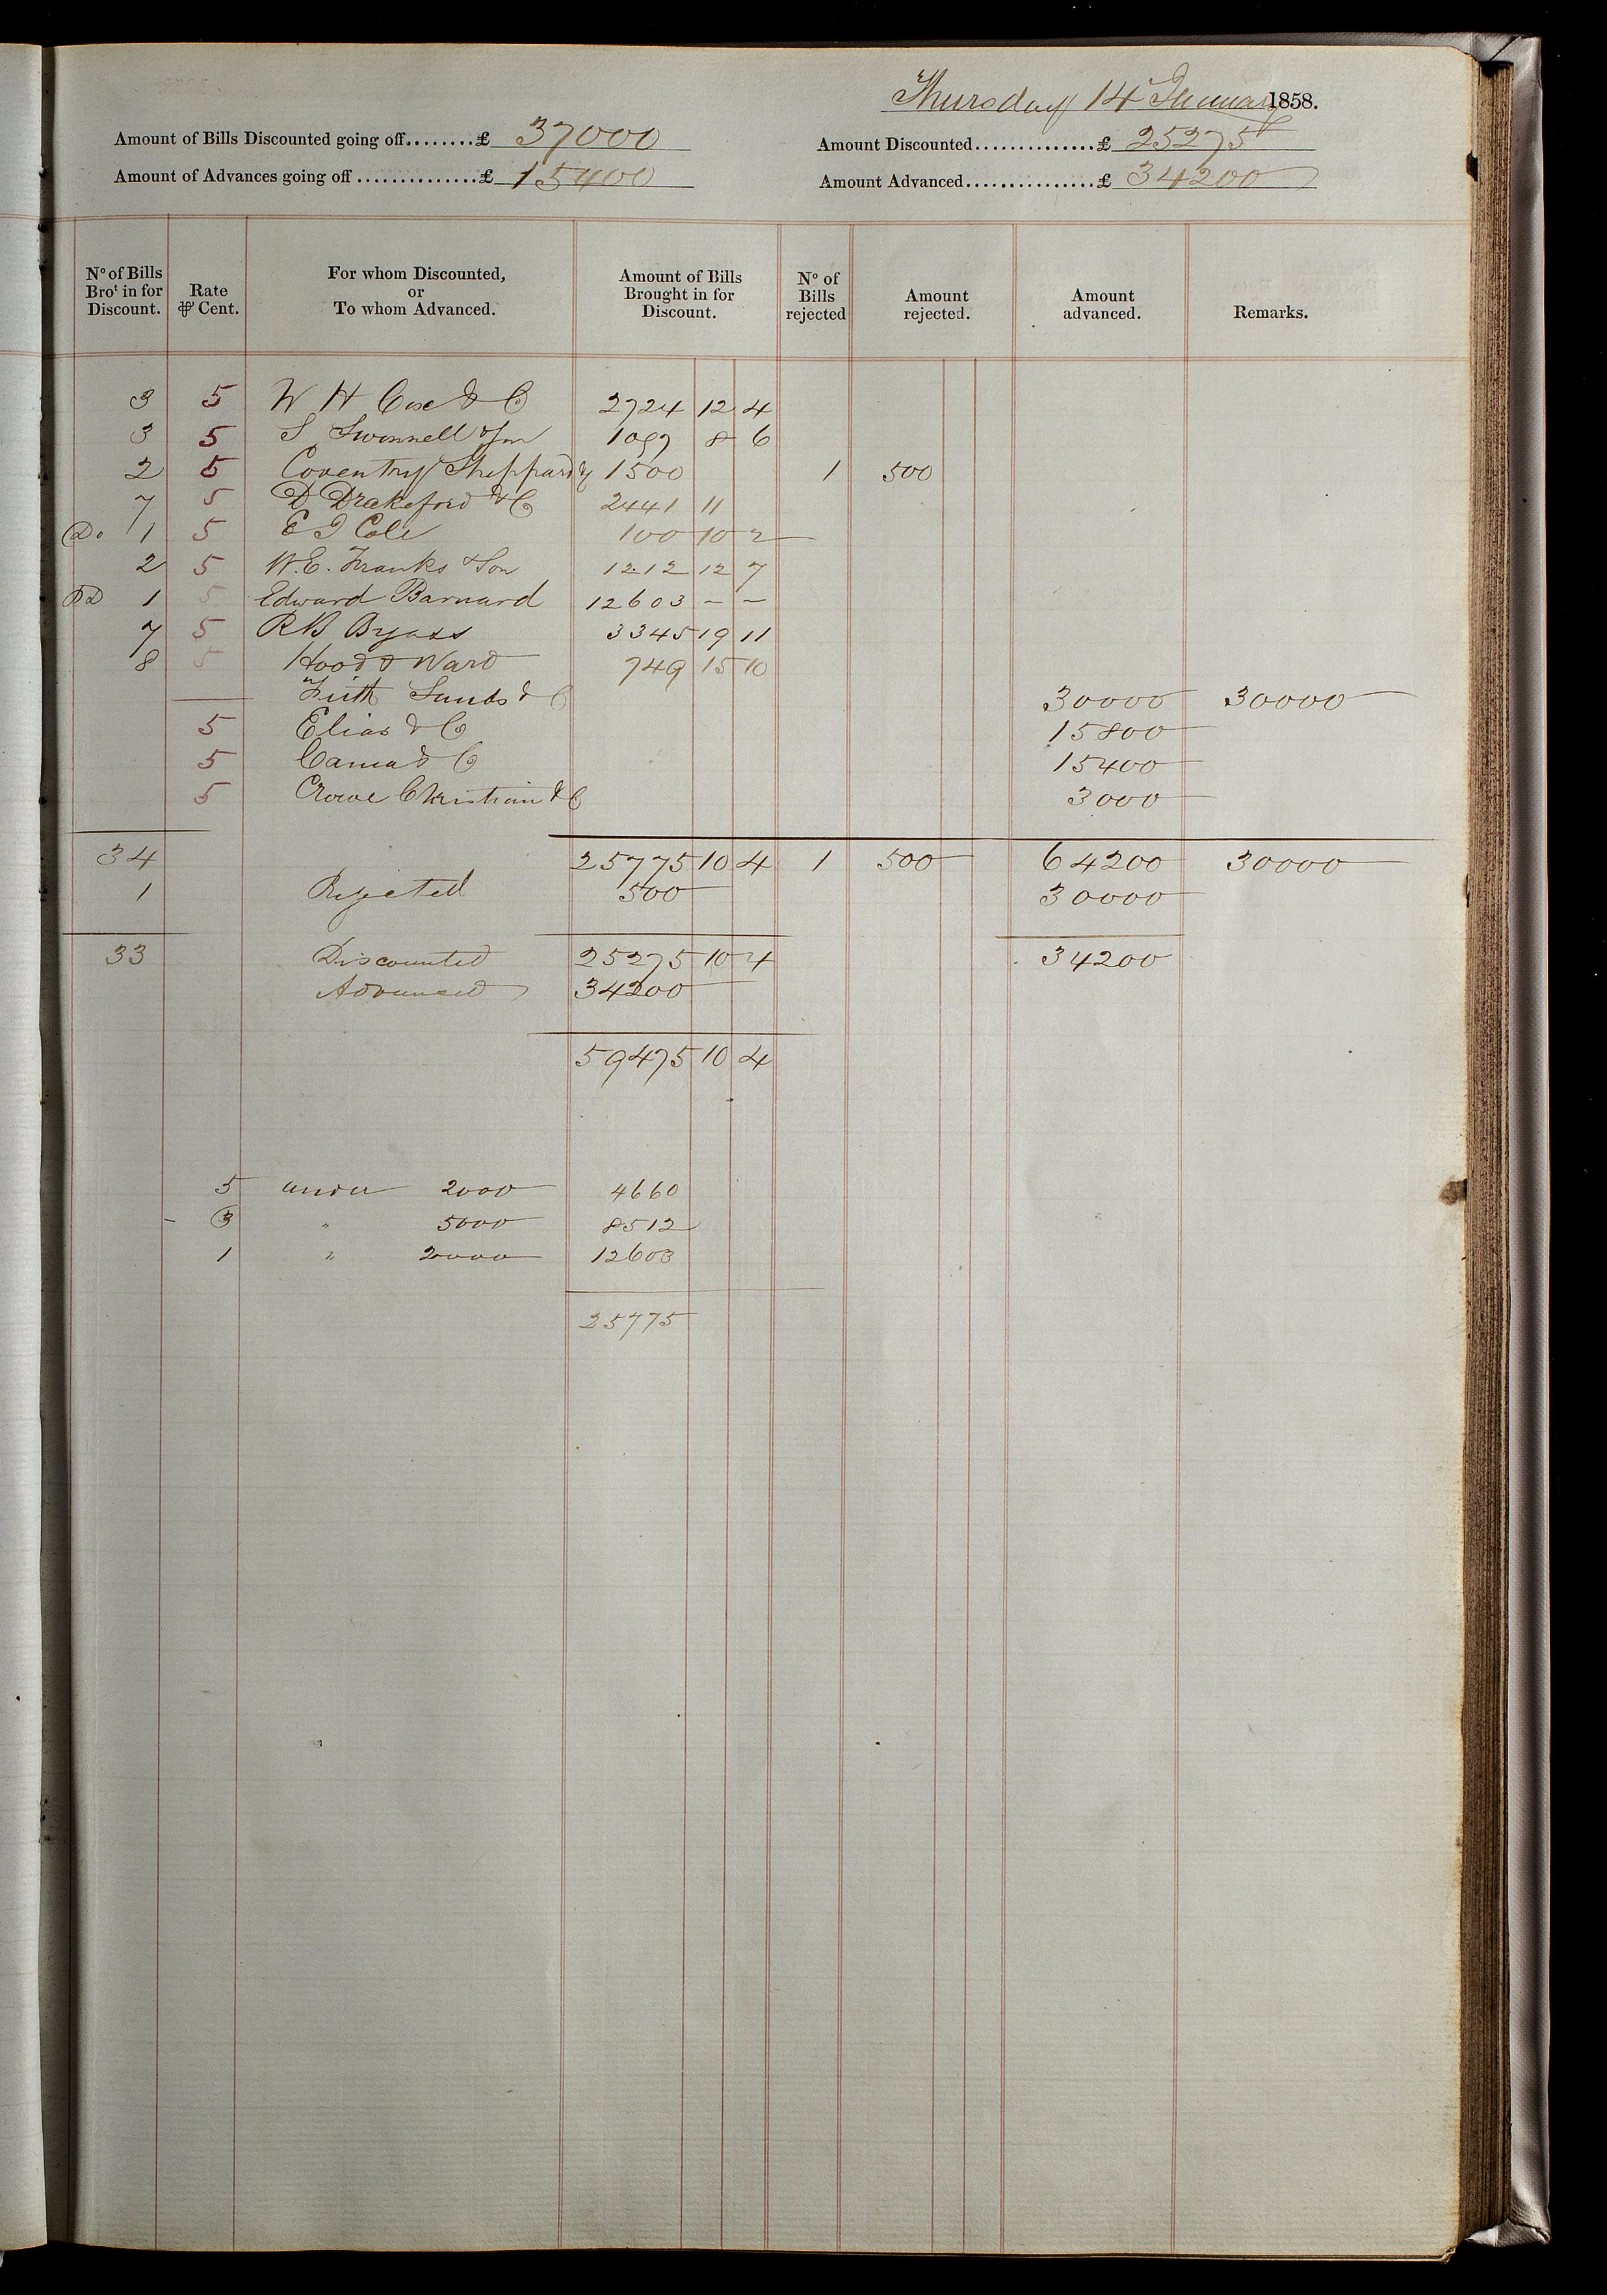 Thursday 14 January 1858.
Amount of Bills Discounted going off........£ 37000 Amount Discounted..............£ 25275
Amount of Advances going off..............£ 15400 Amount Advanced...............£ 34200
Nº of Bills Broᵗ in for Discount. Rate ⅌ Cent. For whom Discounted, or To whom Advanced. Amount of Bills Brought in for Discount. Nº of Bills rejected Amount rejected. Amount advanced. Remarks.
3 5 W H Cox & Co 2724 12 4
3 5 S Swonnell & Son 1097 8 6
2 5 Coventry Sheppard & 1500 1 500
7 5 D Drakeford & Co 2441 11
Do 1 5 E J Cole 100 10 2
2 5 W. E. Franks & Son 1212 12 7
1 5 Edward Barnard 12603 – –
7 5 R B Byass 3345 19 11
8 5 Hood & Ward 749 15 10
Firth Sands & Co 30000 30000
5 Elias & Co 15800
5 Cama & Co 15400
5 Crowe Christian & Co 3000
34 25775 10 4 1 500 64200 30000
1 Rejected 500 30000
33 Discounted 25275 10 4 34200
Advanced 34200
59475 10 4
5 under 2000 4660
3 " 5000 8512
1 " 20000 12603
25775